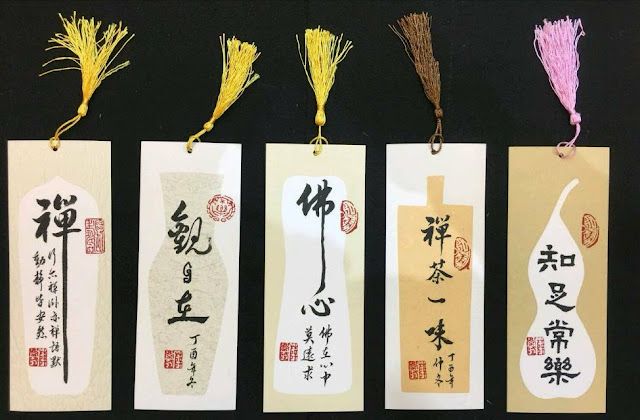 禪
行亦禪亦禪語默
動靜皆安然
觀自在
丁酉年冬
佛心
佛在心中
莫遠求
禪茶一味
丁酉年
仲冬
知足常樂